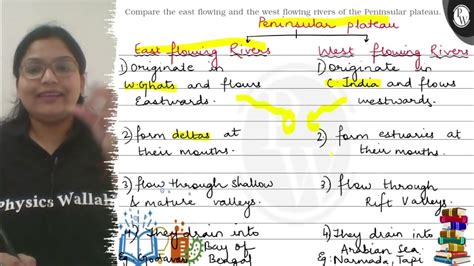 Compare the east flowing and the west flowing rivers of the Peninsular plateau.
Peninsular plateau
East flowing Rivers
West flowing Rivers
1) Originate in
W.Ghats and flows
Eastwards.
1) Originate in
C. India and flows
westwards.
2) form deltas at
their mouths.
2) form estuaries at
their mouths.
3) flow through shallow
& mature valleys.
3) flow through
Rift Valleys.
4) They drain into
Bay of
Eg: Godavari Bengal
4) They drain into
Arabian Sea.
Eg: Narmada, Tapi
Physics Wallah